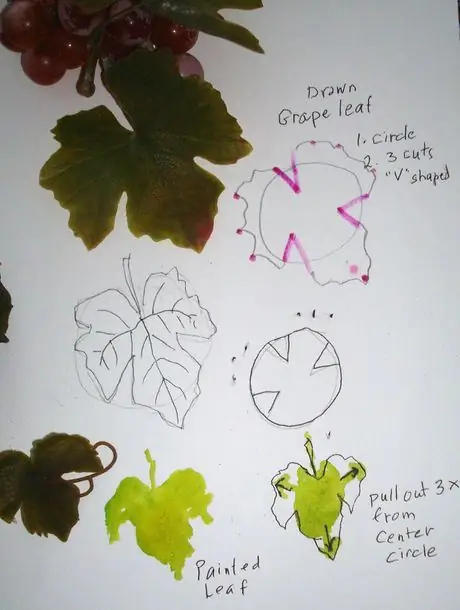 Drawn
Grape leaf
1. circle
2. 3 cuts
"V" shaped
Painted
Leaf
pull out 3x
from
center
circle